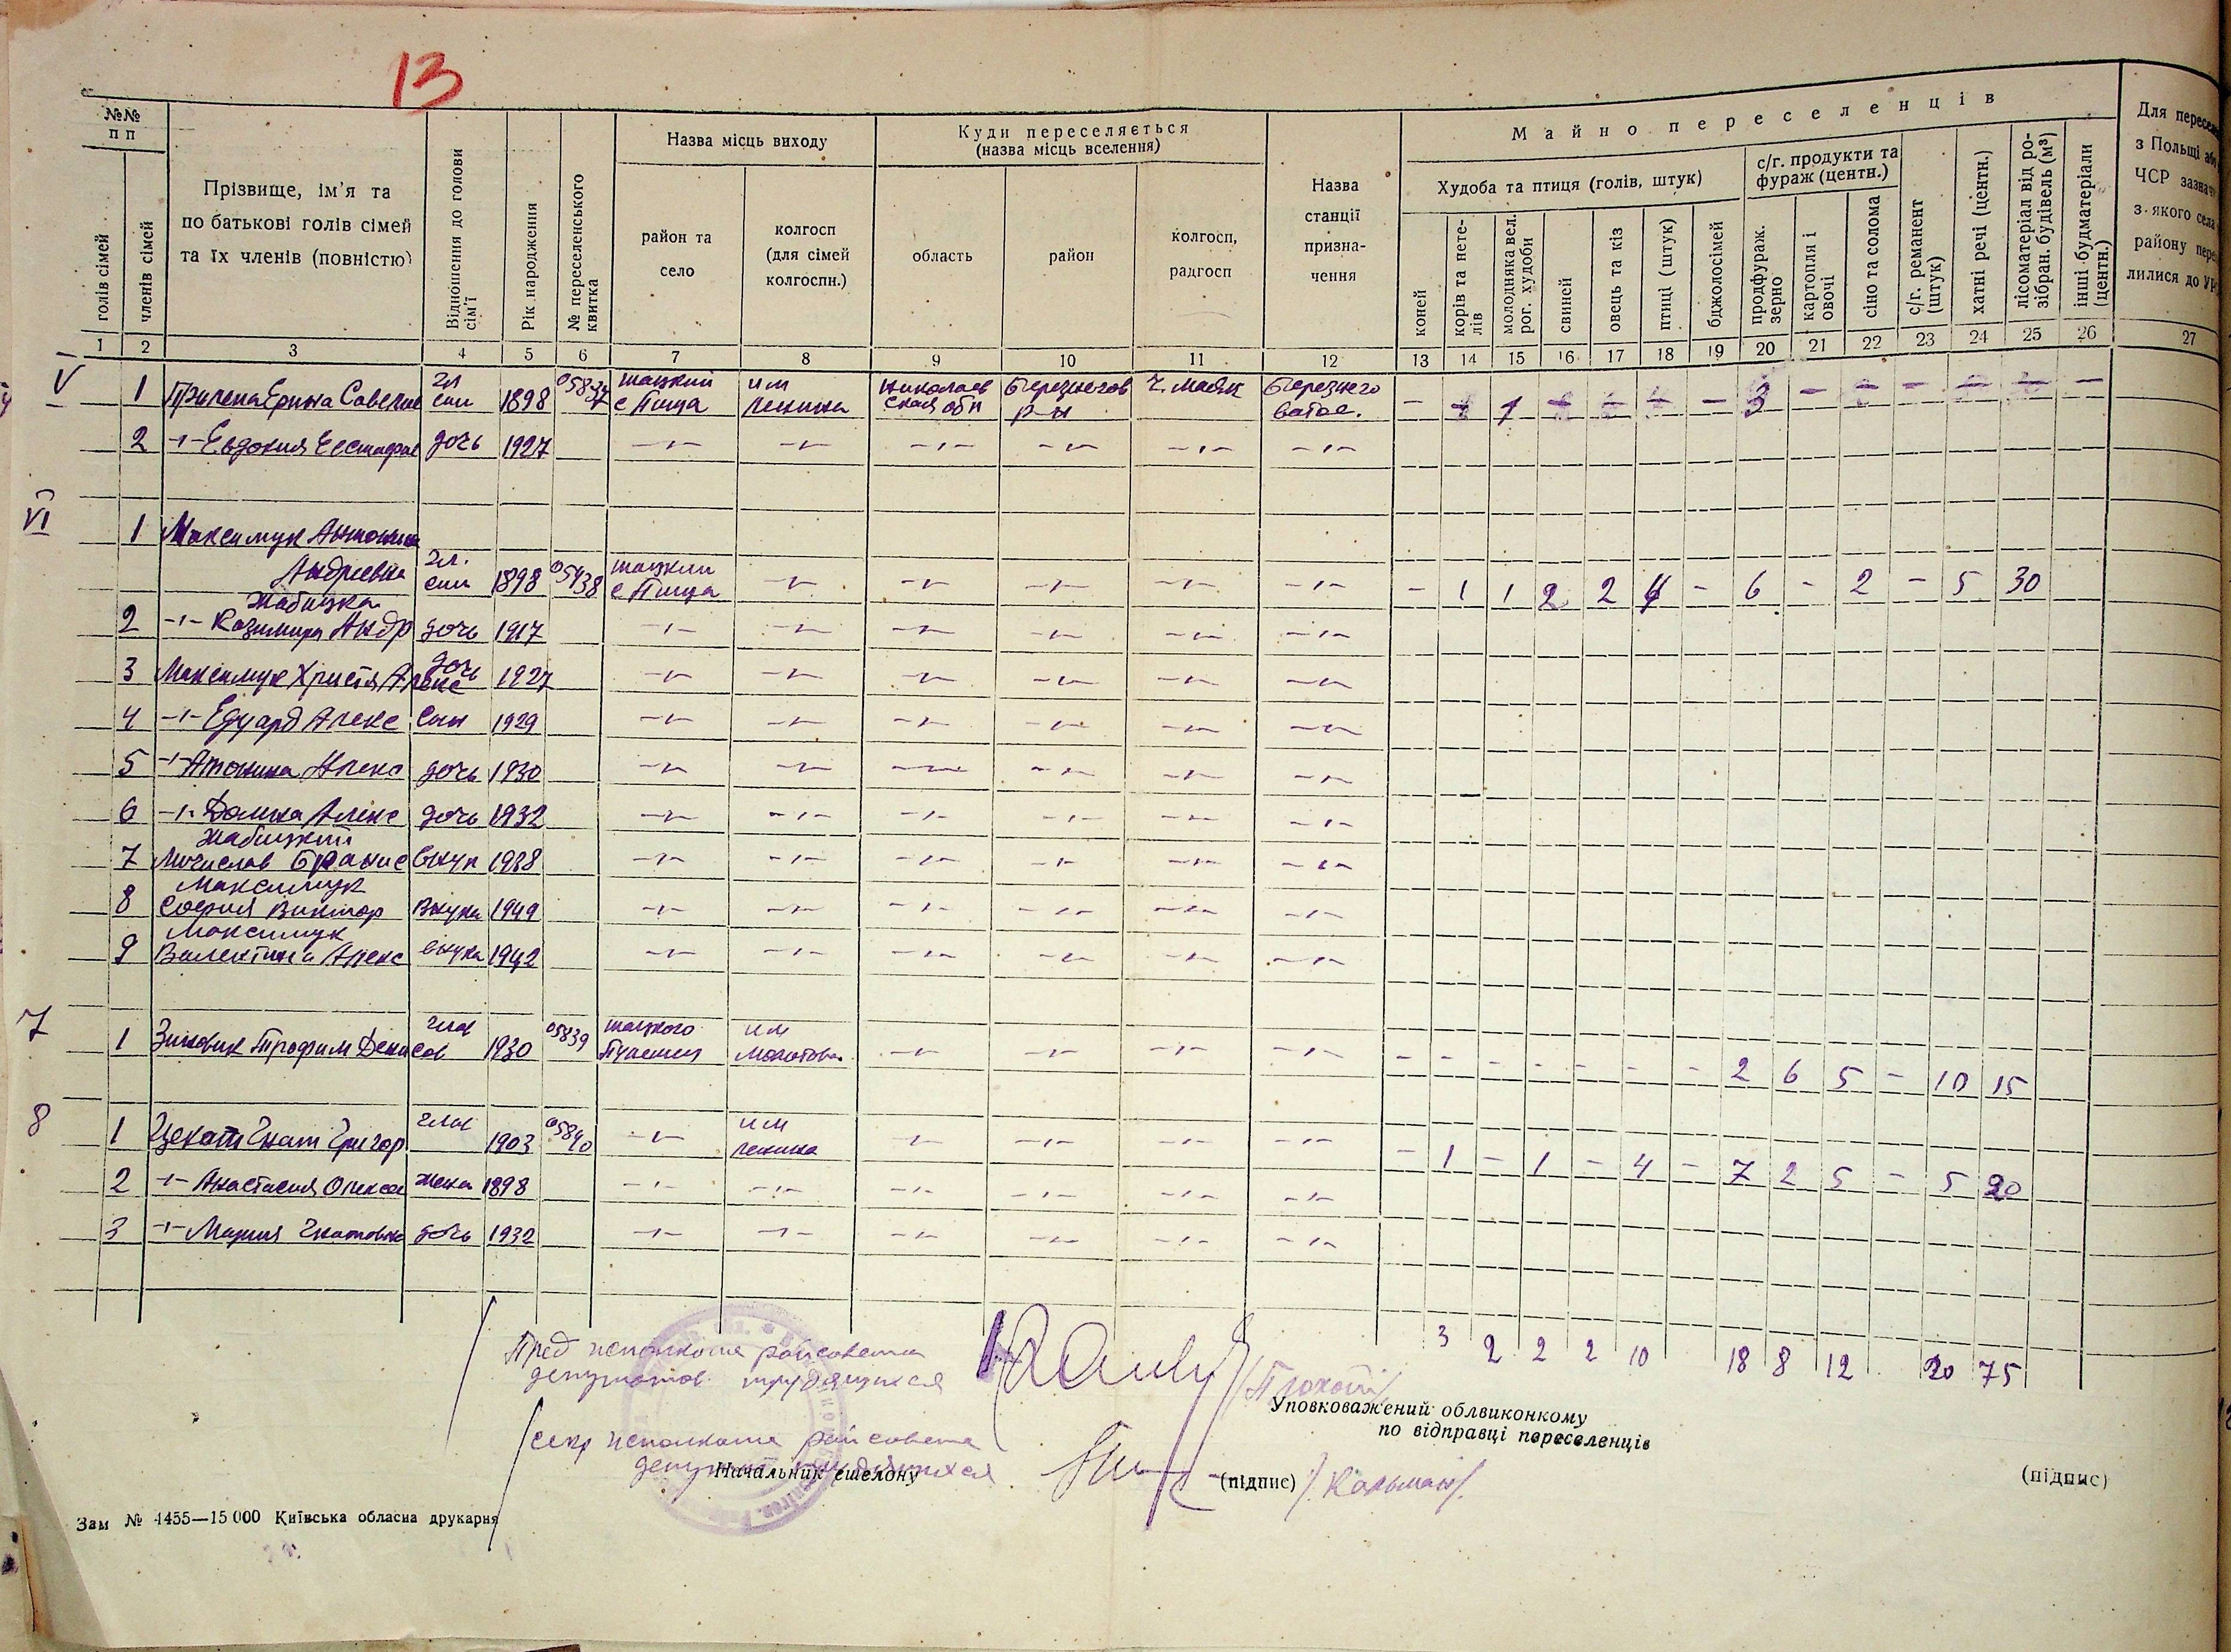 13
№№ п п
голів сімей
членів сімей
Прізвище, ім'я та
по батькові голів сімей
та їх членів (повністю)
Відношення до голови сім'ї
Рік народження
№ переселенського квитка
Назва місць виходу
район та село
колгосп (для сімей колгоспн.)
Куди переселяється
(назва місць вселення)
область
район
колгосп, радгосп
Назва станції призна-чення
Майно переселенців
Худоба та птиця (голів, штук)
коней
корів та нете-лів
молодняка вел. рог. худоби
свиней
овець та кіз
птиці (штук)
бджолосімей
с/г. продукти та фураж (центн.)
продфураж. зерно
картопля і овочі
сіно та солома
с/г. реманент (штук)
хатні речі (центн.)
лісоматеріал від ро-зібран. будівель (м³)
інші будматеріали (центн.)
Для пересел
з Польщі або
ЧСР зазнач
з якого села
району пере
лилися до УР
1 2 3 4 5 6 7 8 9 10 11 12 13 14 15 16 17 18 19 20 21 22 23 24 25 26 27
V 1 Ерина Савелие гл сем 1898 05837 шацкий с Пища им Ленина николаев ская обл Березнегов р-н Ч. Маяк Березнего ватое. — 1 — 3 — — — — —
2 -ı- Евдокия Евстафие дочь 1927 -ı- -ı- -ı- -ı- -ı- -ı-
VI 1 Максимук Антонина
Андреевна гл. сем 1898 шацкий с Пища -ı- -ı- -ı- -ı- -ı- - 1 1 2 2 - 6 - 2 - 5 30
Жабицка
2 -ı- Казимира Андр дочь 1917 -ı- -ı- -ı- -ı- -ı- -ı-
3 Максимук Христя Алекс дочь 1927 -ı- -ı- -ı- -ı- -ı- -ı-
4 -ı- Едуард Алекс Сын 1929 -ı- -ı- -ı- -ı- -ı- -ı-
5 -ı- Атонина Алекс дочь 1930 -ı- -ı- -ı- -ı- -ı- -ı-
6 -ı- Домка Алекс дочь 1932 -ı- -ı- -ı- -ı- -ı- -ı-
Жабицкий
7 Мичислав Бранис Внук 1938 -ı- -ı- -ı- -ı- -ı- -ı-
Максимук
8 София Виктор Внука 1949 -ı- -ı- -ı- -ı- -ı- -ı-
Максимук
9 Валентина Алекс внука 1942 -ı- -ı- -ı- -ı- -ı- -ı-
7 1 Зиновик Трофим Денисов 1930 05839 шацкого им Молотова -ı- -ı- -ı- -ı- - - - - - - - 2 6 5 - 10 15
8 1 Цекот Гнат Григор 1903 05840 -ı- им Ленина -ı- -ı- -ı- -ı- - 1 - 1 - 4 - 7 2 5 - 5 20
2 -ı- Анастасия Олексе жена 1898 -ı- -ı- -ı- -ı- -ı- -ı-
3 -ı- Мария Гнатовна дочь 1932 -ı- -ı- -ı- -ı- -ı- -ı-
3 2 2 2 10 18 8 12 20 75
Пред исполкома райсовета
депутатов трудящихся
Уповковажений облвиконкому
по відправці переселенців
секр исполкома райсовета
депутат трудящихся
Начальник ешелону
(підпис) /Кальман/.
(підпис)
Зам № 4455—15 000 Київська обласна друкарня